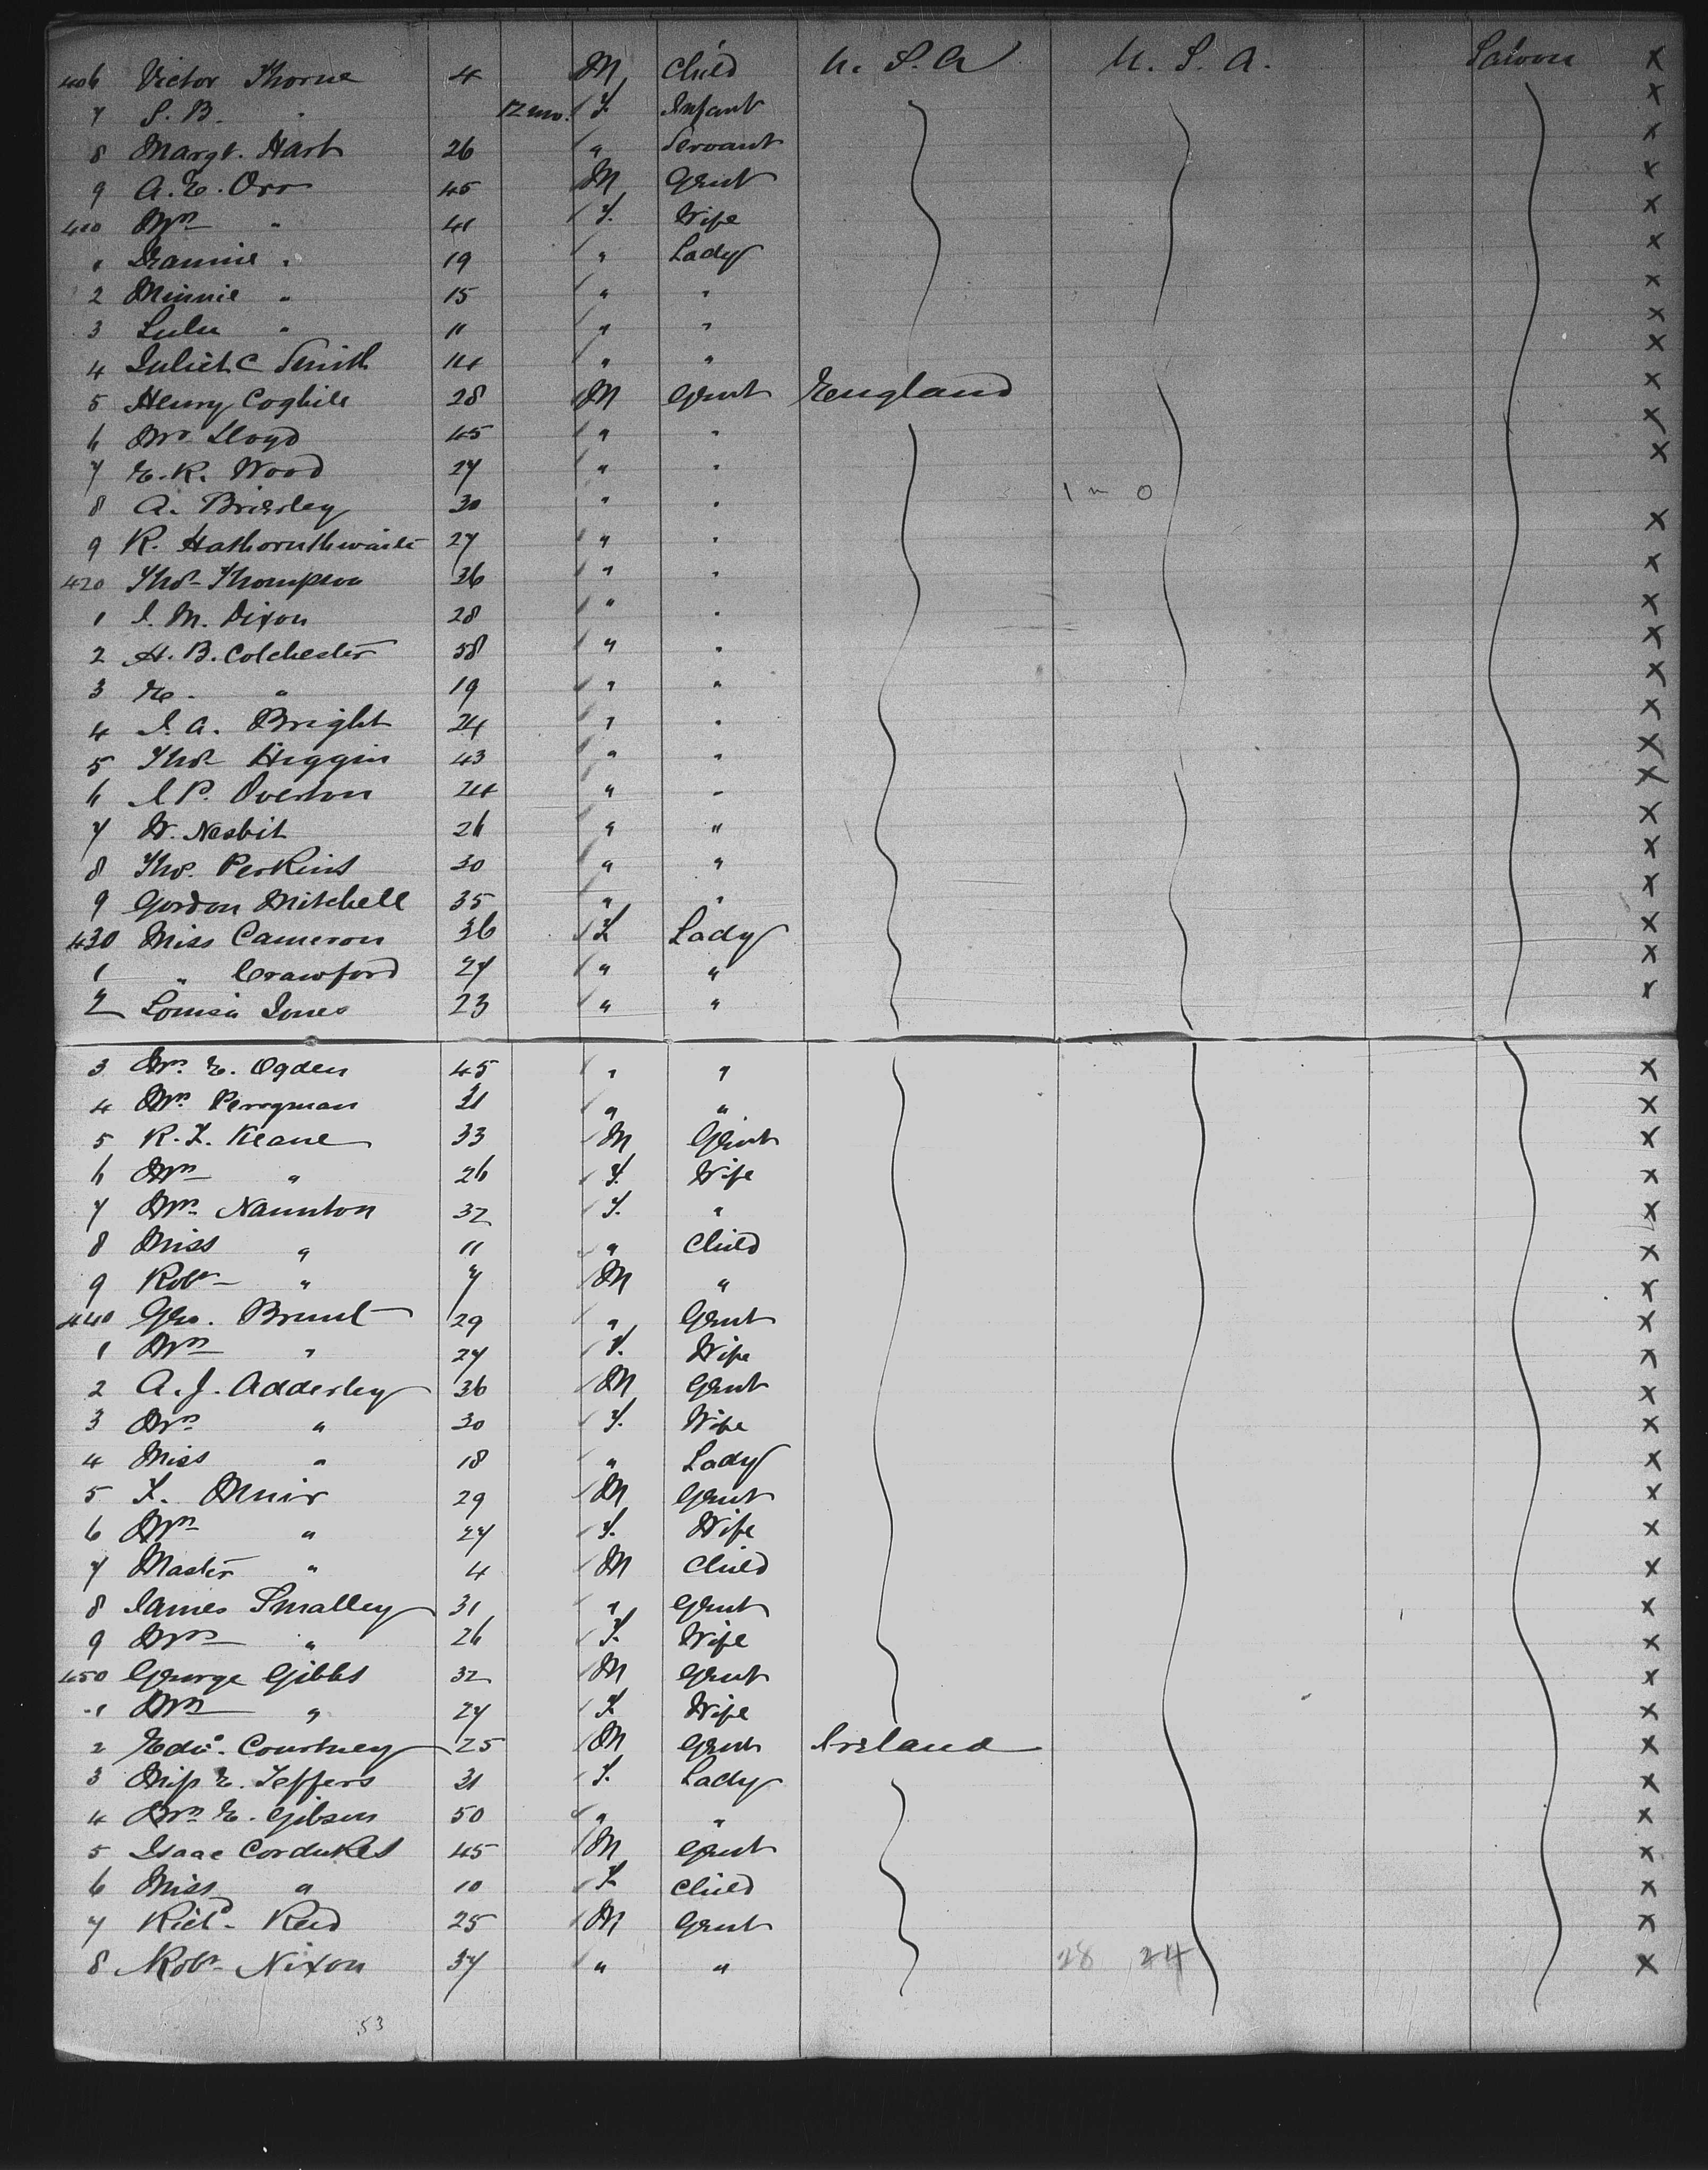 406 Victor Thorne 4 M Child U. S. A U. S. A. Saloon X
7 S. B. " 12 mo. F. Infant X
8 Margt. Hart 26 " Servant X
9 A. E. Orr 45 M Gent X
410 Mrs " 41 F. Wife X
1 " 19 " Lady X
2 Minnie " 15 " " X
3 Lulu " 11 " " X
4 Juliet C Smith 14 " " X
5 Henry Coghill 28 M Gent England X
6 Lloyd 45 " " X
7 E. R. Wood 27 " " X
8 A. Brierley 30 " " 1 m 0
9 R. Hathornthwaite 27 " " X
420 Thos Thompson 36 " " X
1 J. M. Dixon 28 " " X
2 H. B. Colchester 58 " " X
3 E. " 19 " " X
4 J. A. Bright 24 " " X
5 Thos Higgin 43 " " X
6 J. P. Overton 24 " " X
7 W. Nesbit 26 " " X
8 Thos. Perkins 30 " " X
9 Gordon Mitchell 35 " " X
430 Miss Cameron 36 F Lady X
1 " Crawford 27 " " X
2 Louisa Jones 23 " " X
3 Mrs. E. Ogden 45 " " X
4 Mrs. Perrgman 31 " " X
5 R. F. Keane 33 M Gent X
6 Mrs " 26 F. Wife X
7 Mrs. Naunton 32 F. " X
8 Miss " 11 " Child X
9 Robt " 7 M " X
440 Geo. Brunt 29 " Gent X
1 Mrs " 27 F. Wife X
2 A. J. Adderley 36 M Gent X
3 Mrs " 30 F. Wife X
4 Miss " 18 " Lady X
5 F. Muir 29 M Gent X
6 Mrs " 27 F. Wife X
7 Master " 4 M Child X
8 James Smalley 31 " Gent X
9 Mrs " 26 F. Wife X
450 George Gibbs 32 M Gent X
1 Mrs " 27 F Wife X
2 Edwd. Courtney 25 M Gent Ireland X
3 Miss E. Jeffers 31 F. Lady X
4 Mrs E. Gibson 50 " " X
5 Isaac Cordukes 45 M Gent X
6 Miss " 10 F Child X
7 Richd Reid 25 M Gent X
8 Robt Nixon 37 " " 28 24 X
53